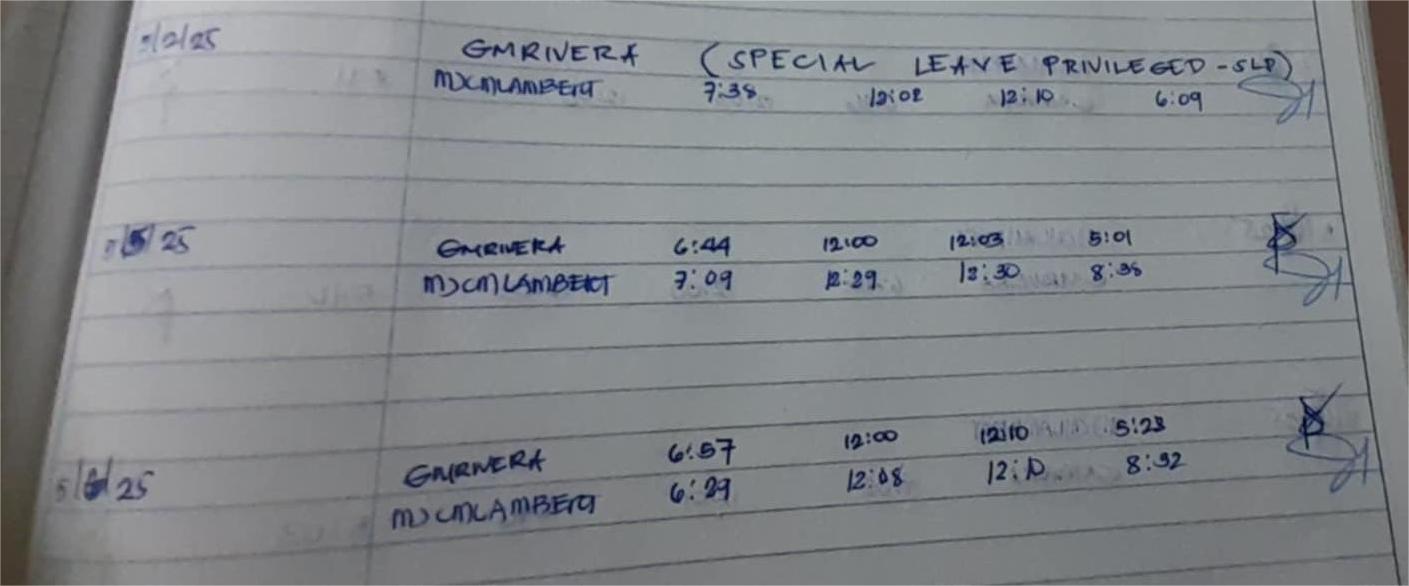 5/2/25 GMRIVERA (SPECIAL LEAVE PRIVILEGED-SLP)
MJCMLAMBERT 7:38 12:02 12:10 6:09
5/5/25 GMRIVERA 6:44 12:00 12:03 5:01
MJCMLAMBERT 7:09 12:29 12:30 8:38
5/6/25 GMRIVERA 6:57 12:00 12:10 5:23
MJCMLAMBERT 6:29 12:08 12:10 8:32